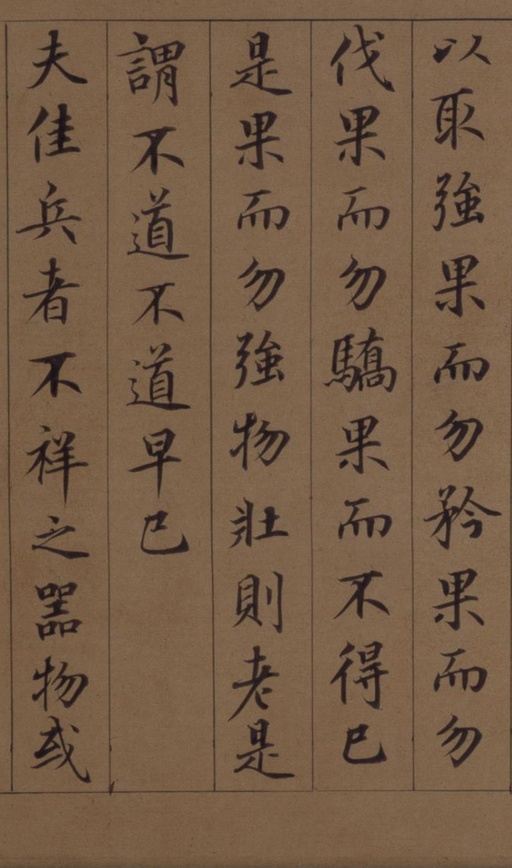 以取強果而勿矜果而勿
伐果而勿驕果而不得已
是果而勿強物壯則老是
謂不道不道早已
夫佳兵者不祥之器物或